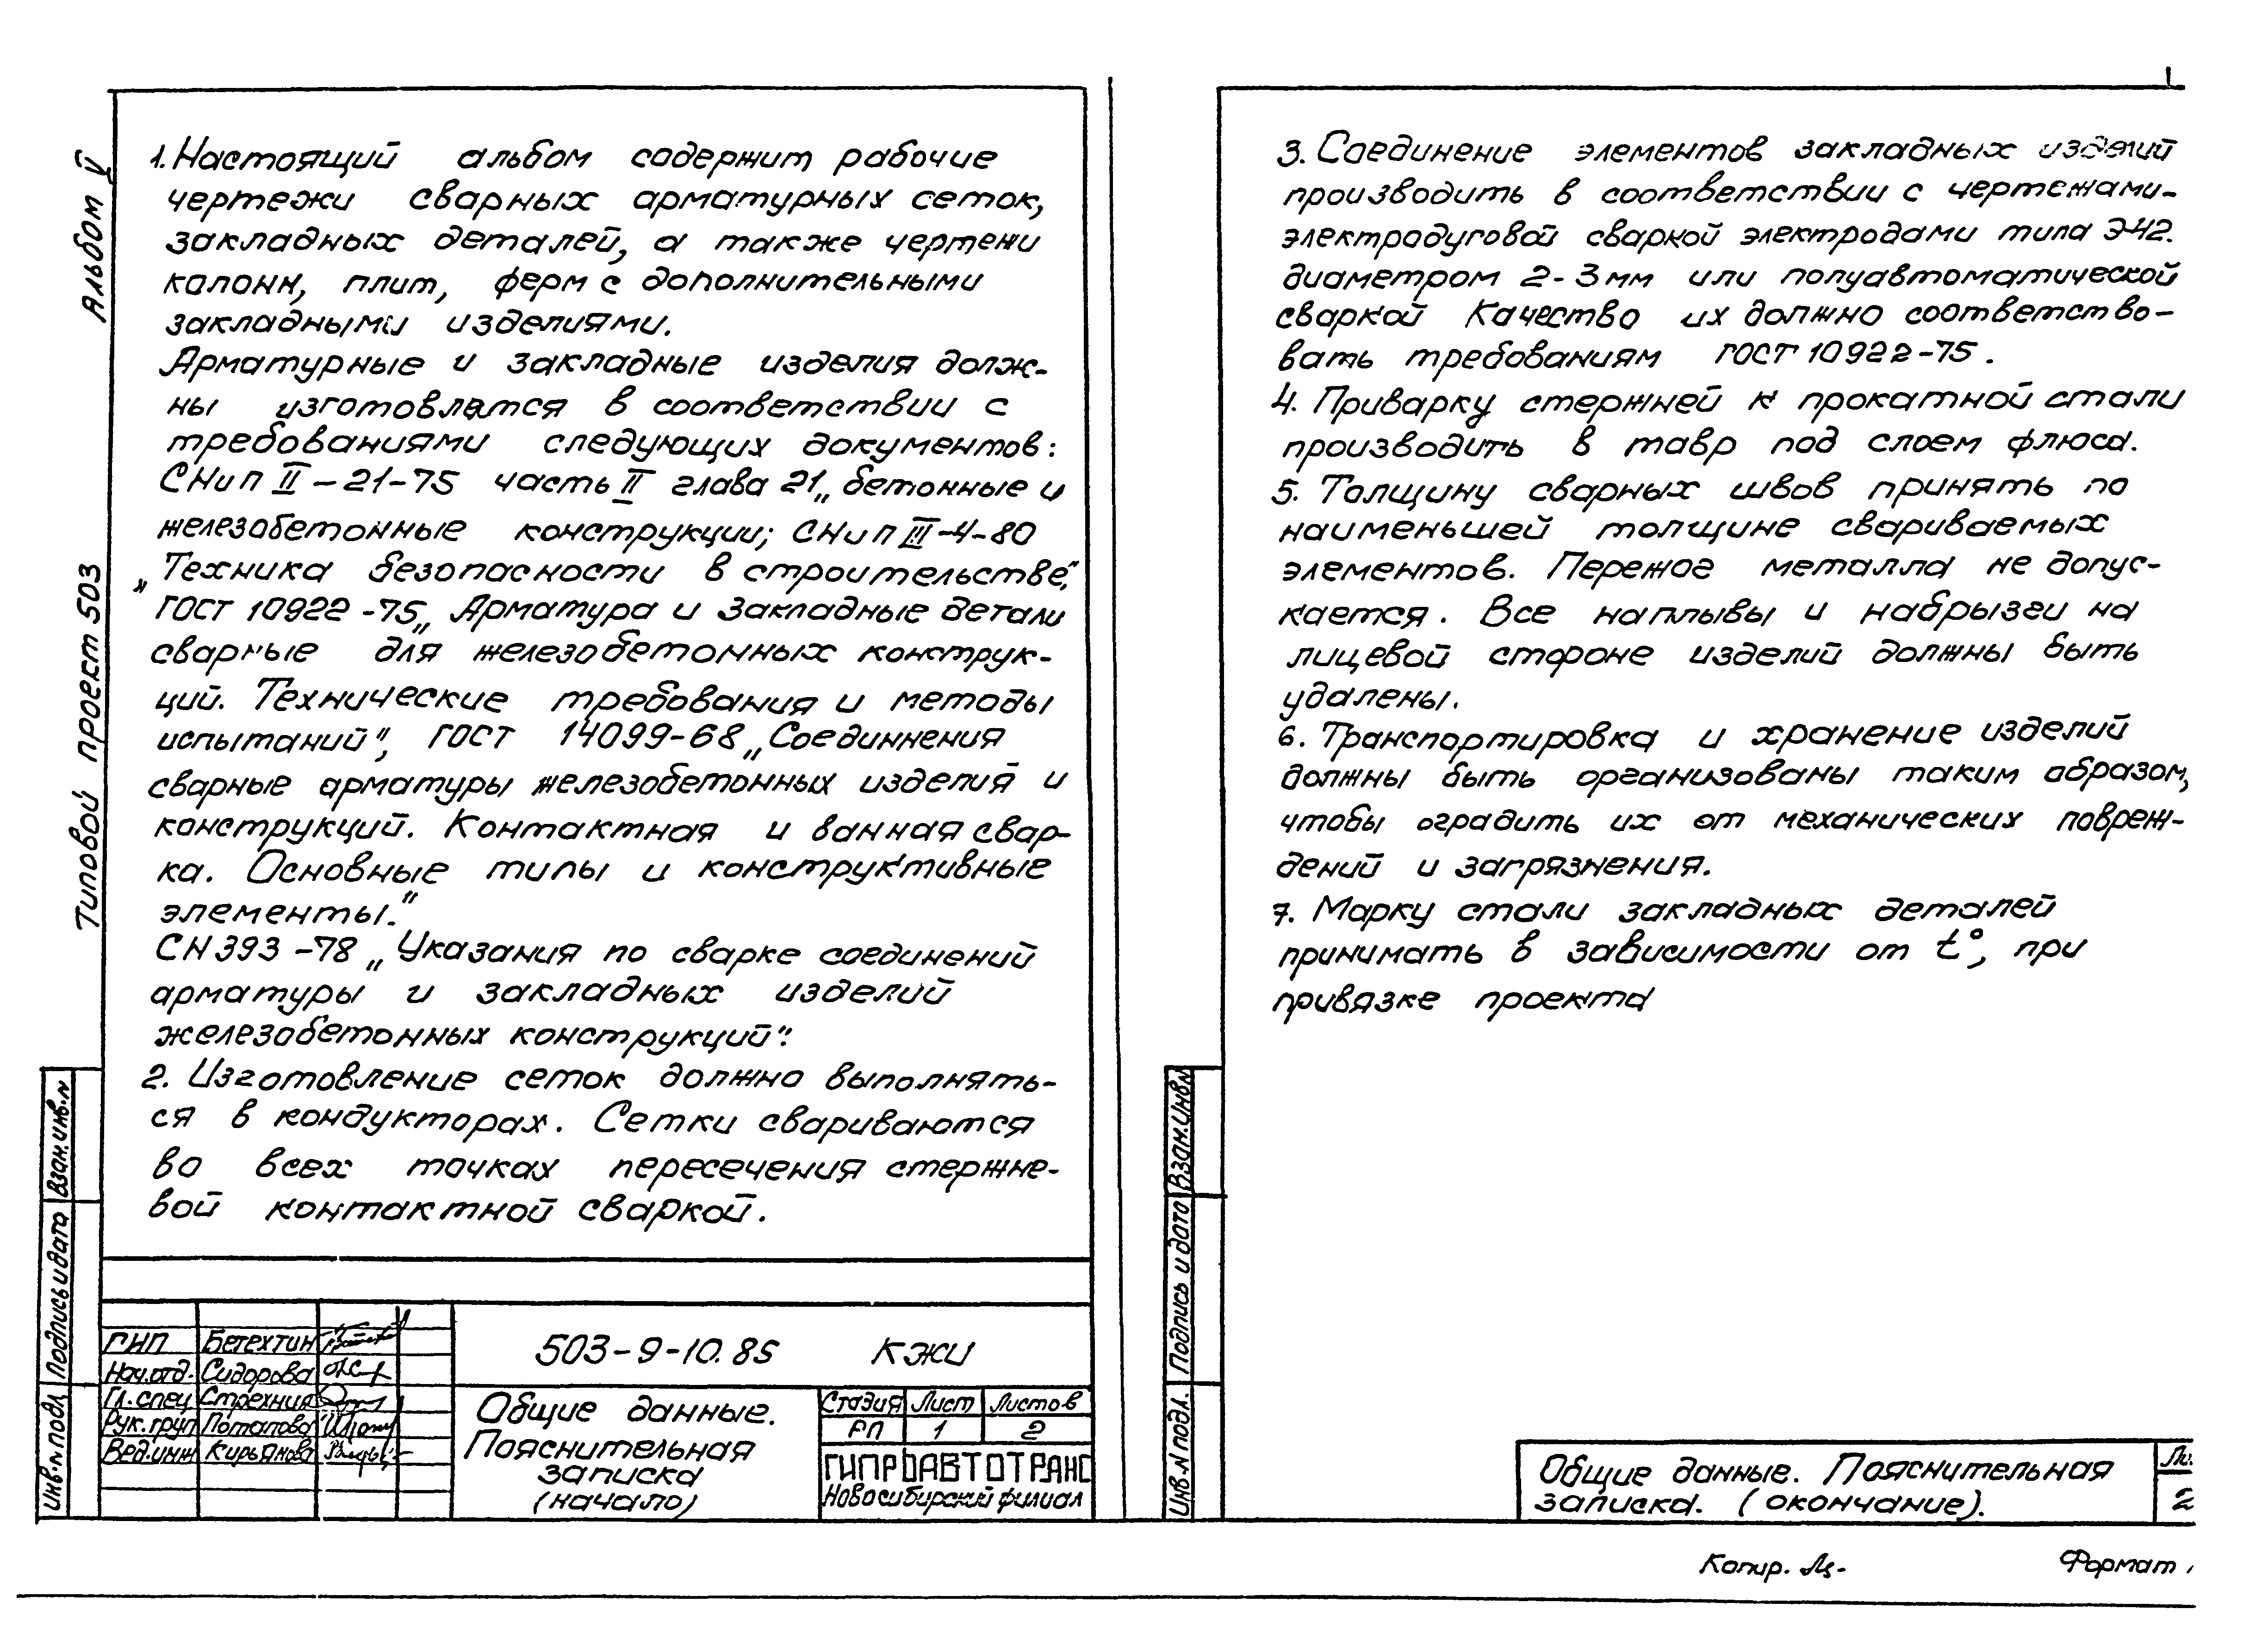 Альбом V
Типовой проект 503
1. Настоящий альбом содержит рабочие
чертежи сварных арматурных сеток,
закладных деталей, а также чертежи
колонн, плит, ферм с дополнительными
закладными изделиями.
Арматурные и закладные изделия долж-
ны изготовлятся в соответствии с
требованиями следующих документов:
СНиП II-21-75 часть II глава 21 „бетонные и
железобетонные конструкции; СНиП III-4-80
„Техника безопасности в строительстве",
ГОСТ 10922-75 „Арматура и закладные детали
сварные для железобетонных конструк-
ций. Технические требования и методы
испытаний", ГОСТ 14099-68 „Соединнения
сварные арматуры железобетонных изделия и
конструкций. Контактная и ванная свар-
ка. Основные типы и конструктивные
элементы."
СН 393-78 „Указания по сварке соединений
арматуры и закладных изделий
железобетонных конструкций".
2. Изготовление сеток должно выполнять-
ся в кондукторах. Сетки свариваются
во всех точках пересечения стержне-
вой контактной сваркой.
3. Соединение элементов закладных изделий
производить в соответствии с чертежами-
электродуговой сваркой электродами типа Э-42.
диаметром 2-3 мм или полуавтоматической
сваркой Качество их должно соответство-
вать требованиям ГОСТ 10922-75.
4. Приварку стержней к прокатной стали
производить в тавр под слоем флюса.
5. Толщину сварных швов принять по
наименьшей толщине свариваемых
элементов. Пережог металла не допус-
кается. Все наплывы и набрызги на
лицевой стороне изделий должны быть
удалены.
6. Транспортировка и хранение изделий
должны быть организованы таким образом,
чтобы оградить их от механических повреж-
дений и загрязнения.
7. Марку стали закладных деталей
принимать в зависимости от t°, при
привязке проекта
Взам.инв.№
Подпись и дата
Инв.№ подл
ГИП Бетехтин
Нач.отд. Сидорова
Гл.спец Стрехния
Рук.груп Потапова
Вед.инж Кирьянова
503-9-10.85 КЖИ
Общие данные.
Пояснительная
записка
(начало)
Стадия Лист Листов
РП 1 2
ГИПРОАВТОТРАНС
Новосибирский филиал
Взам.Инв№
Подпись и дата
Инв.№ подл.
Общие данные. Пояснительная
записка. (окончание).
Ли
2
Копир.
Формат